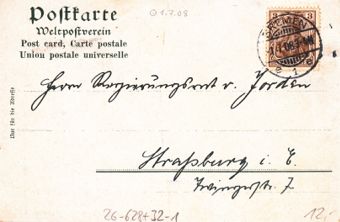 Postkarte
Weltpostverein
Post card, Carte postale
Union postale universelle
01.7.08
BREMEN
3
Nur für die Adresse
Herrn Regierungsrat v. Jorden
Straßburg i. E.
7
26-628+32-1
12,-